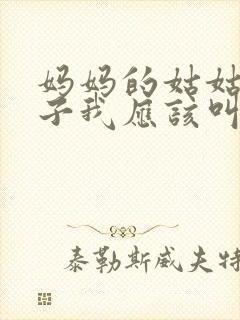 妈妈的姑姑
子我应该叫
泰勒斯威夫特